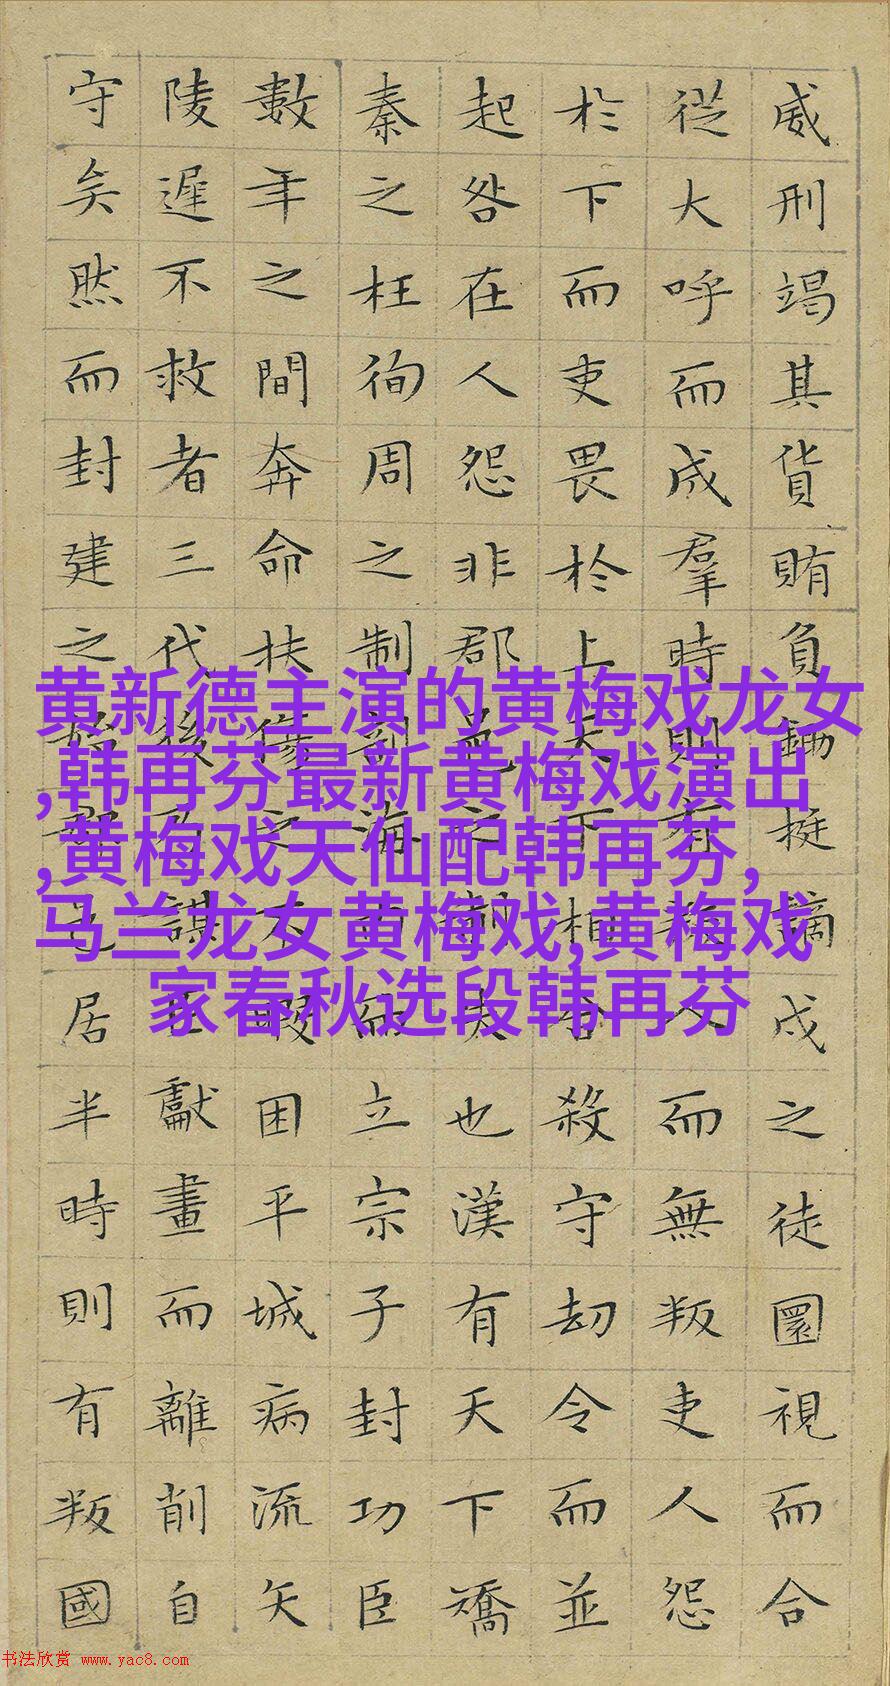 威刑竭其貨賄負鋤梃謫戍之徒圜視而合
從大呼而成羣時則有叛人而無叛吏人怨
於下而吏畏於上天下相合殺守劫令而並
起咎在人怨非郡邑之制失也漢有天下矯
秦之枉徇周之制剖海內而立宗子封功臣
數年之間奔命扶傷之不暇困平城病流矢
陵遲不救者三代後乃謀臣獻畫而離削自
守矣然而封建之始郡邑居半時則有叛國
黄新德主演的黄梅戏龙女
,韩再芬最新黄梅戏演出
,黄梅戏天仙配韩再芬,
马兰龙女黄梅戏,黄梅戏
家春秋选段韩再芬
书法欣赏 www.yac8.com